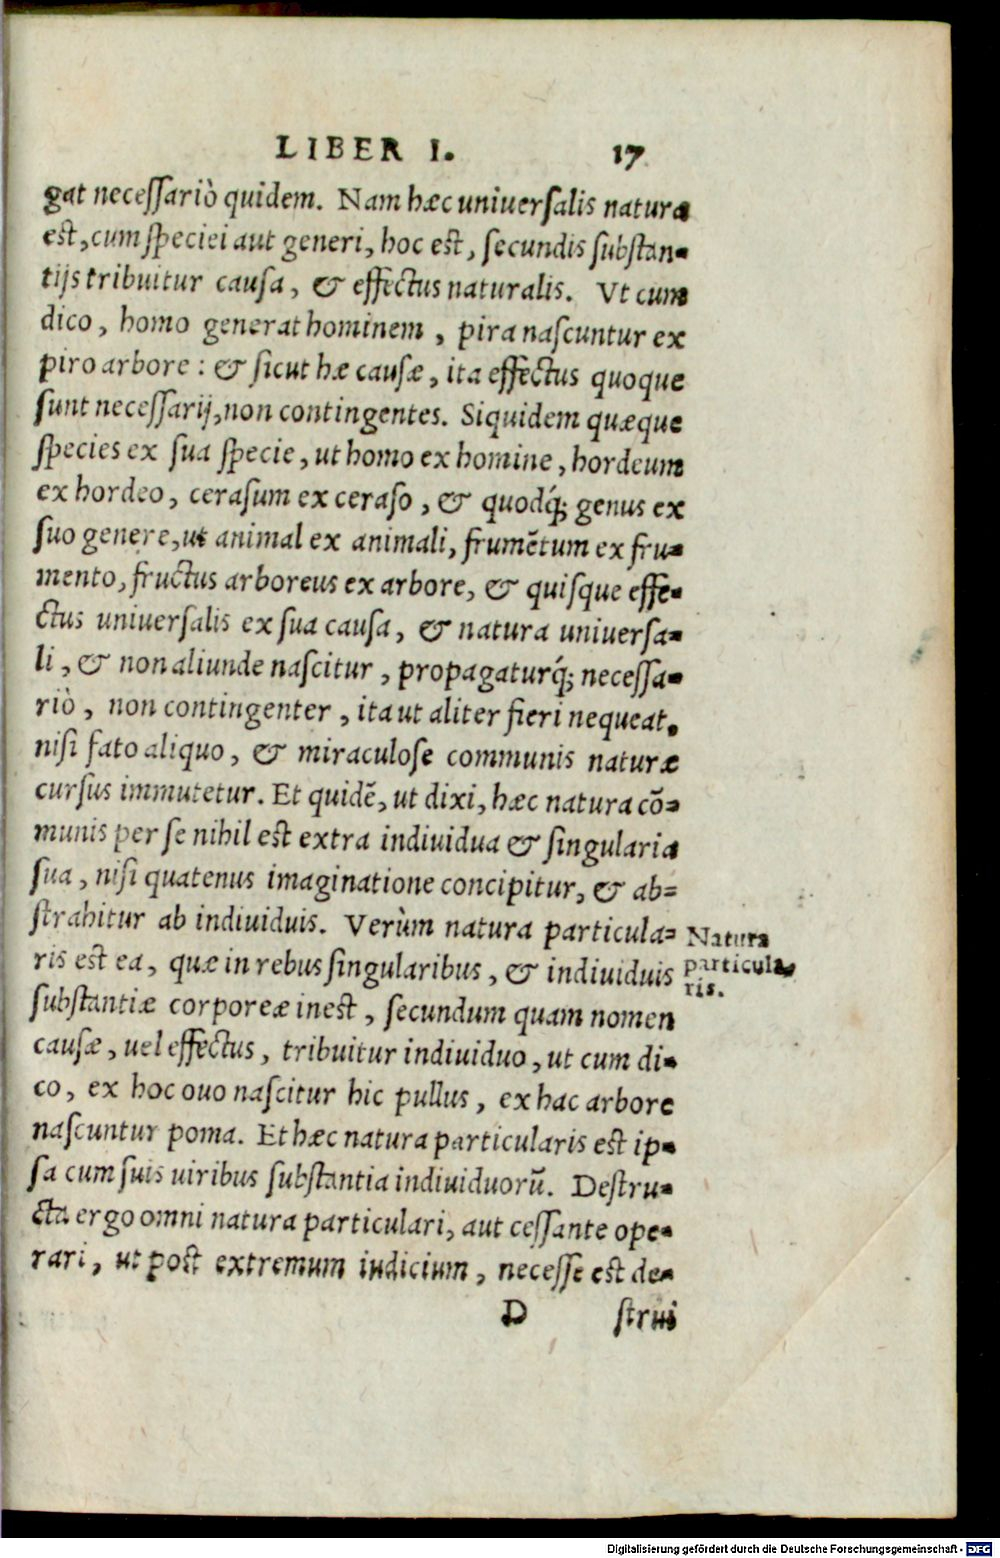 LIBER I. 17
gat necessariò quidem. Nam hæc uniuersalis natura
est, cum speciei aut generi, hoc est, secundis substan-
tijs tribuitur causa, & effectus naturalis. Vt cum
dico, homo generat hominem, pira nascuntur ex
piro arbore: & sicut hæ causæ, ita effectus quoque
sunt necessarij, non contingentes. Siquidem quæque
species ex sua specie, ut homo ex homine, hordeum
ex hordeo, cerasum ex ceraso, & quodq́; genus ex
suo genere, ut animal ex animali, frumētum ex fru-
mento, fructus arboreus ex arbore, & quisque effe-
ctus uniuersalis ex sua causa, & natura uniuersa-
li, & non aliunde nascitur, propagaturq́; necessa-
riò, non contingenter, ita ut aliter fieri nequeat,
nisi fato aliquo, & miraculose communis naturæ
cursus immutetur. Et quidē, ut dixi, hæc natura cō-
munis per se nihil est extra indiuidua & singularia
sua, nisi quatenus imaginatione concipitur, & ab-
strahitur ab indiuiduis. Verùm natura particula-
ris est ea, quæ in rebus singularibus, & indiuiduis
substantiæ corporeæ inest, secundum quam nomen
causæ, uel effectus, tribuitur indiuiduo, ut cum di-
co, ex hoc ouo nascitur hic pullus, ex hac arbore
nascuntur poma. Et hæc natura particularis est ip-
sa cum suis uiribus substantia indiuiduorū. Destru-
cta ergo omni natura particulari, aut cessante ope-
rari, ut post extremum iudicium, necesse est de-
D strui
Natura
particula-
ris.
Digitalisierung gefördert durch die Deutsche Forschungsgemeinschaft - DFG